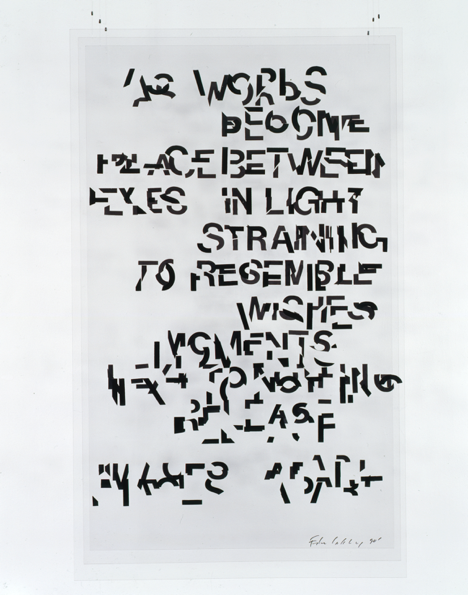 AS WORDS
BECOME
PLACE BETWEEN
EYES IN LIGHT
STRAINING
TO RESEMBLE
WISHES
MOMENTS
NEXT TO NOTHING
PLEASE
APART